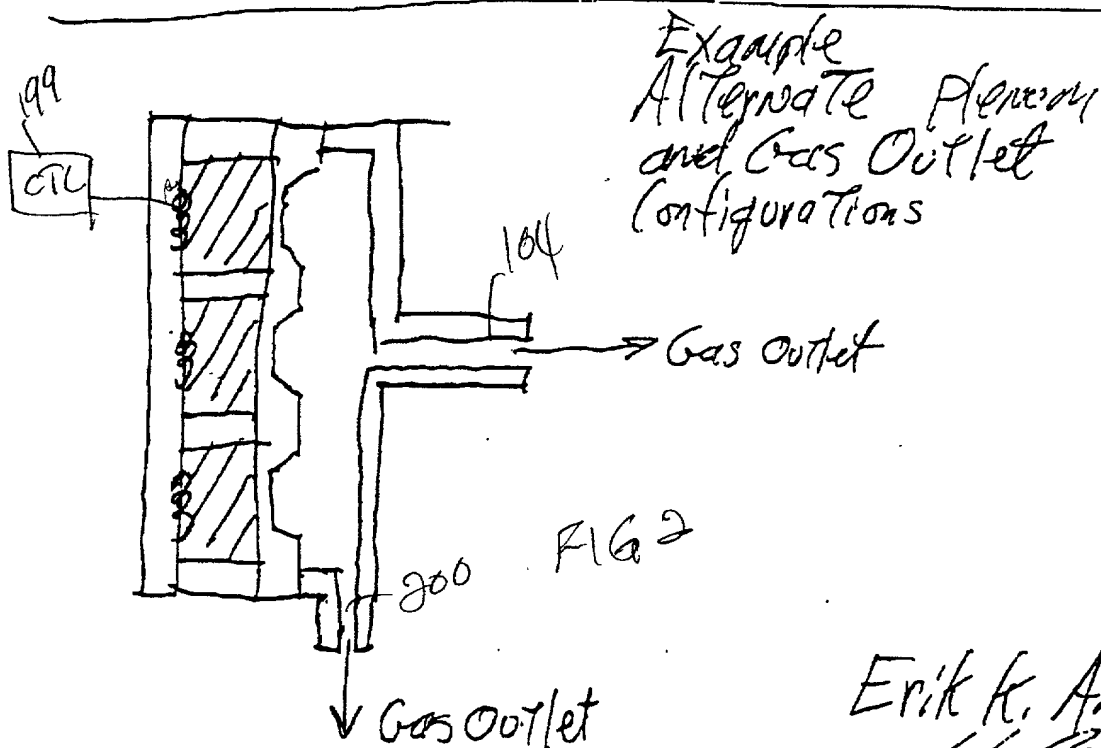 Example
Alternate Plenum
and Gas Outlet
Configurations
199
CTL
104
Gas Outlet
FIG 2
200
Gas Outlet
Erik K.